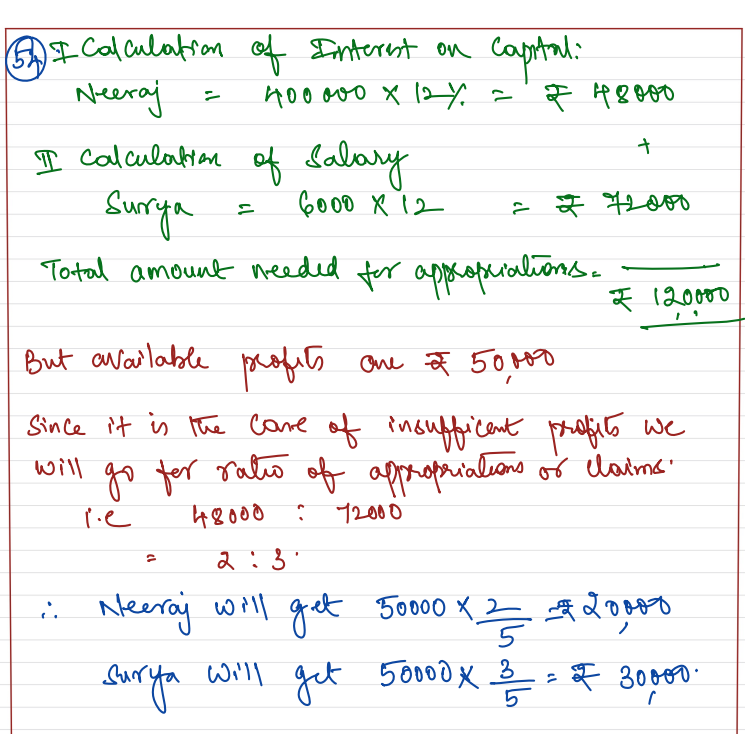 54 I Calculation of Interest on Capital:
Neeraj = 400000 × 12% = ₹ 48000
+
II Calculation of Salary
Surya = 6000 × 12 = ₹ 72000
Total amount needed for appropriations = ₹ 120,000
But available profits are ₹ 50,000
Since it is the case of insufficient profits we
will go for ratio of appropriations or claims.
i.e 48000 : 72000
= 2 : 3.
∴ Neeraj will get 50000 × 2/5 = ₹ 20,000
Surya will get 50000 × 3/5 = ₹ 30,000.